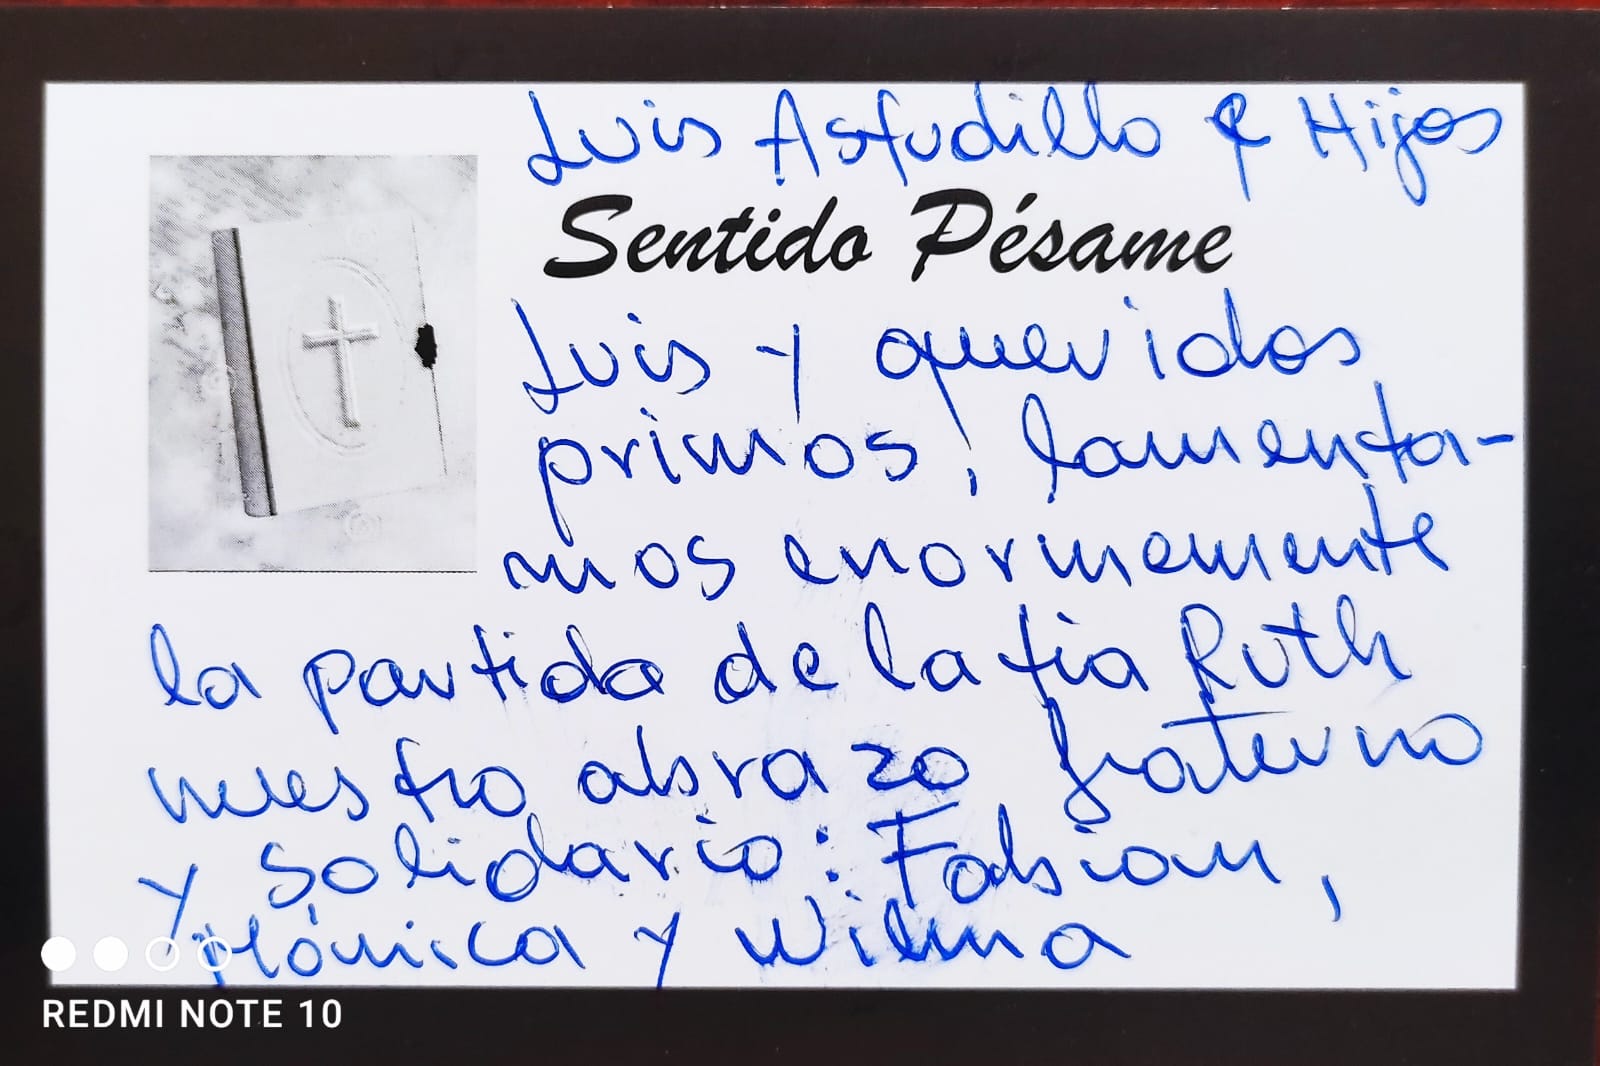 Luis Astudillo & Hijos
Sentido Pésame
Luis y queridos
primos, lamenta-
mos enormemente
la partida de la tia Ruth
nuestro abrazo fraterno
y solidario: Fabian,
Mónica y Wilma
REDMI NOTE 10